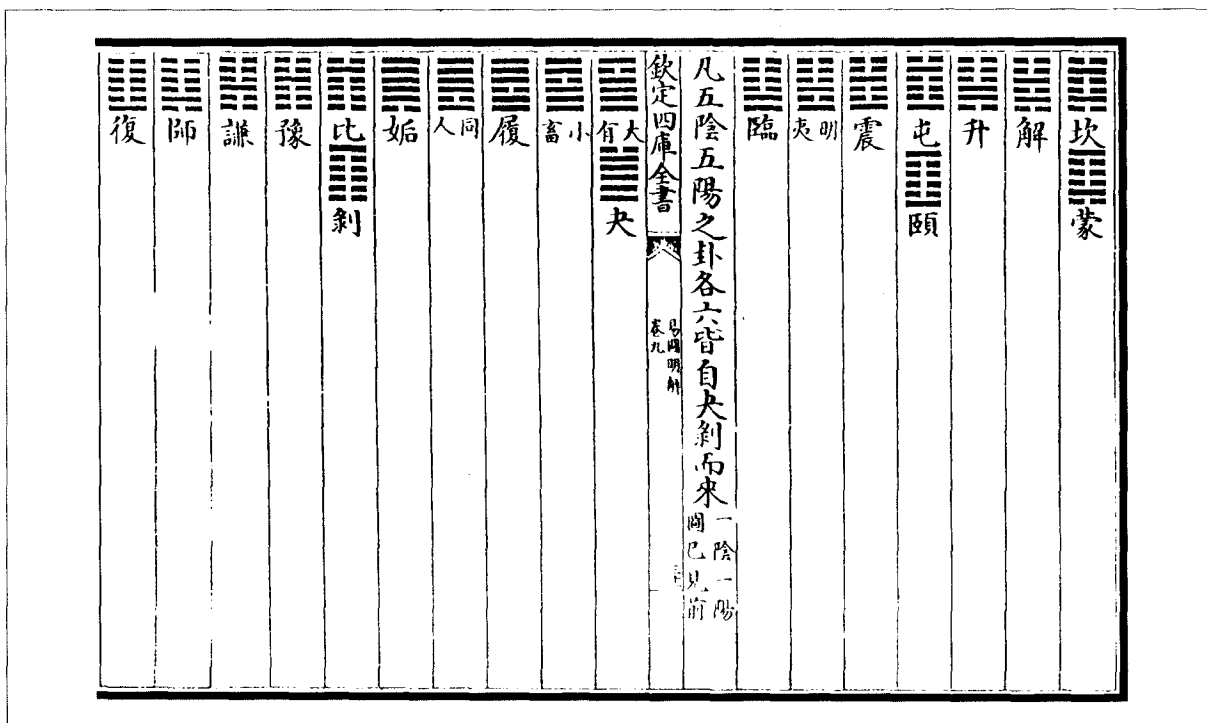 坎蒙
解
升
屯頤
震
明夷
臨
凡五陰五陽之卦各六皆自夬剝而來一陰一陽圖已見前
欽定四庫全書
易圖明辨
卷九
大有夬
小畜
履
同人
姤
比剝
豫
謙
師
復